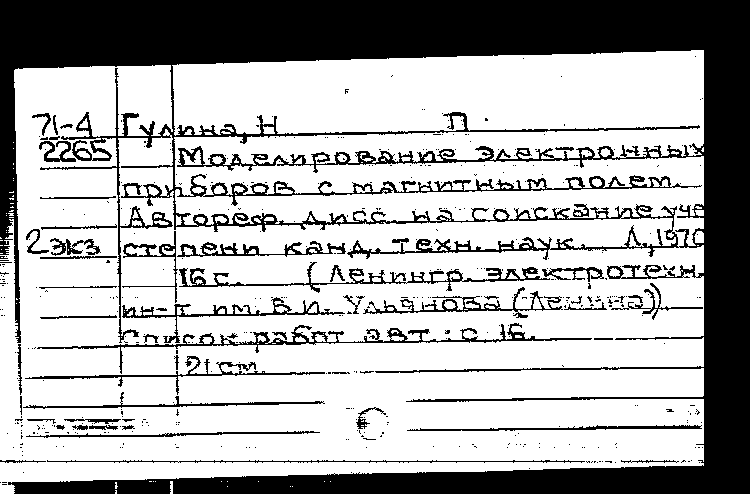 71-4 Гулина, Н П.
2265 Моделирование электронных
приборов с магнитным полем.
Автореф. дисс. на соискание уче
2 экз степени канд. техн. наук. Л., 1970
16 с. (Ленингр. электротехн.
ин-т им. В.И. Ульянова (Ленина)).
Список работ авт.: с 16.
21 см.